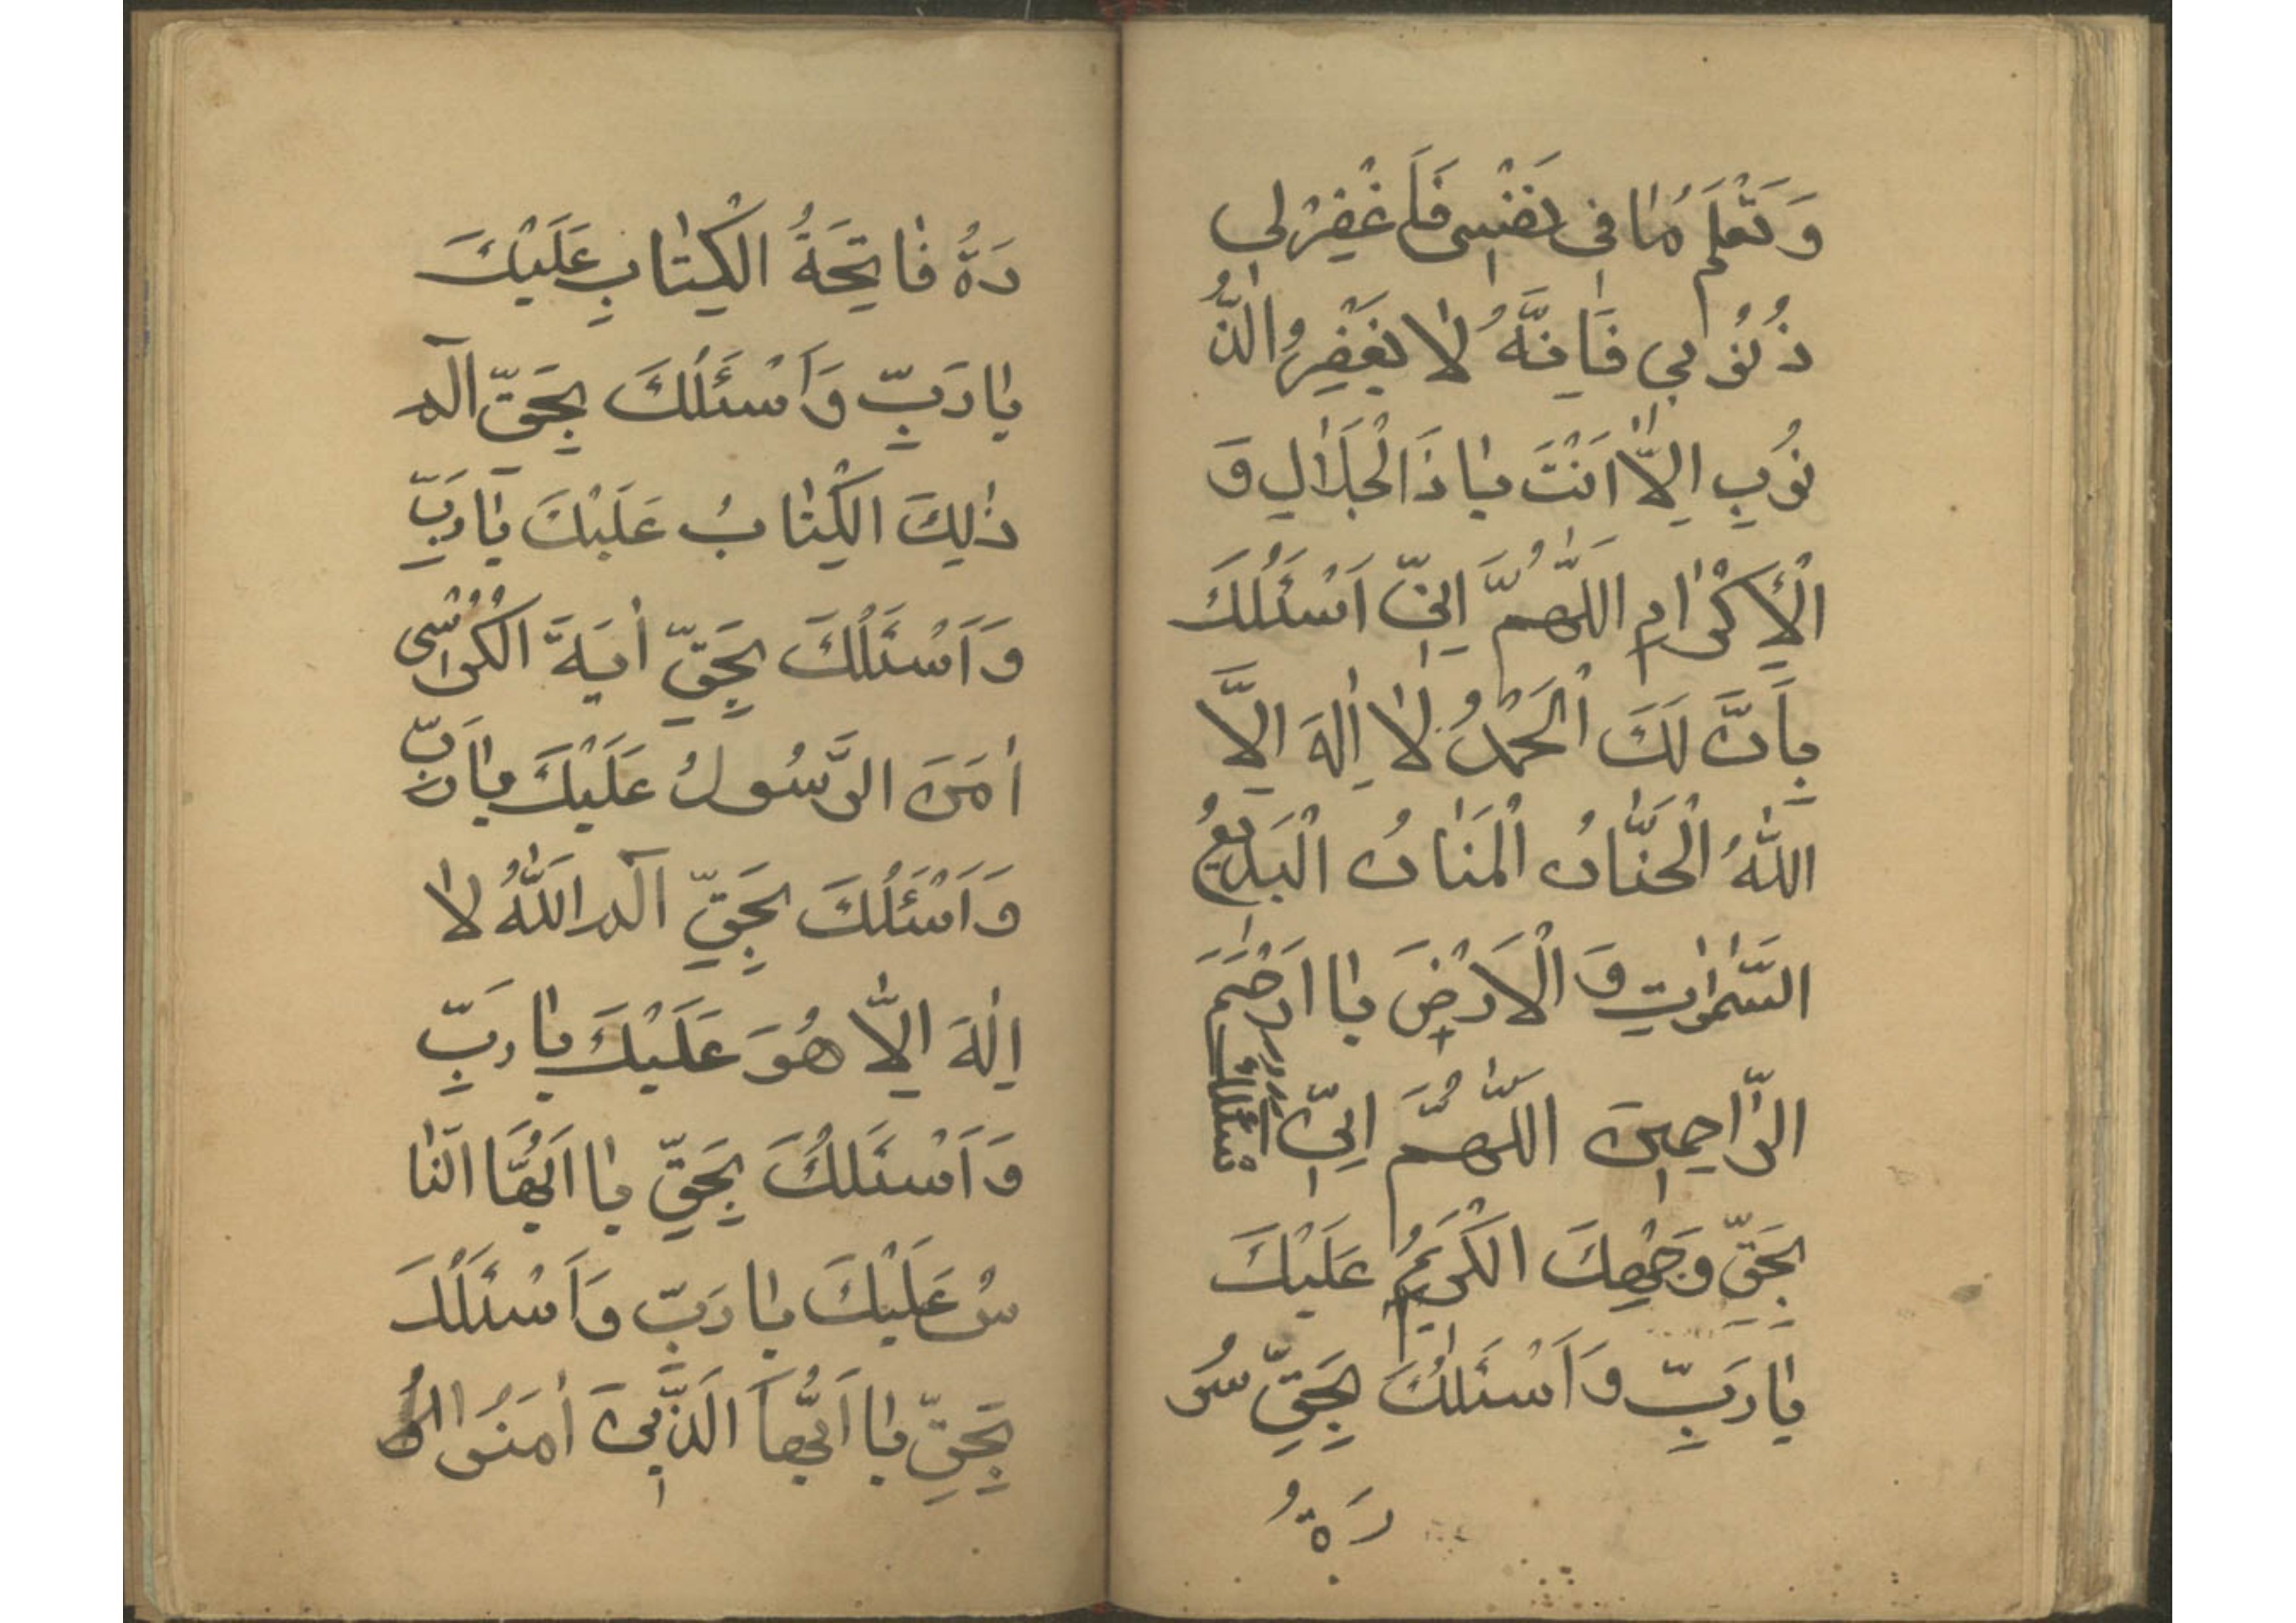 وَتَعْلَمُ مَا فِى نَفْسِى فَاَغْفِرْلِى
ذُنُوبِى فَاِنَّهُ لَا يَغْفِرُ الذُّ
نُوبِ اِلَّا اَنْتَ يَا ذَالْجَلَالِ وَ
الْاِكْرَامِ اللَّهُمَّ اِنِّى اَسْئَلُكَ
بِاَنَّ لَكَ الْحَمْدُ لَا اِلٰهَ اِلَّا
اللّٰهُ الْحَنَّانُ الْمَنَانُ الْبَدِيعُ
السَّمٰوٰاتِ وَ الْاَرْضِ يَا اَرْحَمَ
الرَّاحِمِينَ اللَّهُمَّ اِنِّى اَسْئَلُكَ
بِحَقِّ وَجْهِكَ الْكَرِيمُ عَلَيْكَ
يَا رَبِّ وَاَسْئَلُكَ بِحَقِّ سُو
رَةُ
رَةُ فَاتِحَةُ الْكِتَابِ عَلَيْكَ
يَا رَبِّ وَاَسْئَلُكَ بِحَقِّ آلم
ذٰلِكَ الْكِتَابُ عَلَيْكَ يَا رَبِّ
وَاَسْئَلُكَ بِحَقِّ اٰيَةَ الْكُرْسِى
اٰمَنَ الرَّسُولُ عَلَيْكَ يَا رَبِّ
وَاَسْئَلُكَ بِحَقِّ آلم اللّٰهُ لَا
اِلٰهَ اِلَّا هُوَ عَلَيْكَ يَا رَبِّ
وَاَسْئَلُكَ بِحَقِّ يَا اَيُّهَا النَّا
سُ عَلَيْكَ يَا رَبِّ وَاَسْئَلُكَ
بِحَقِّ يَا اَيُّهَا الَّذِينَ اٰمَنُوا